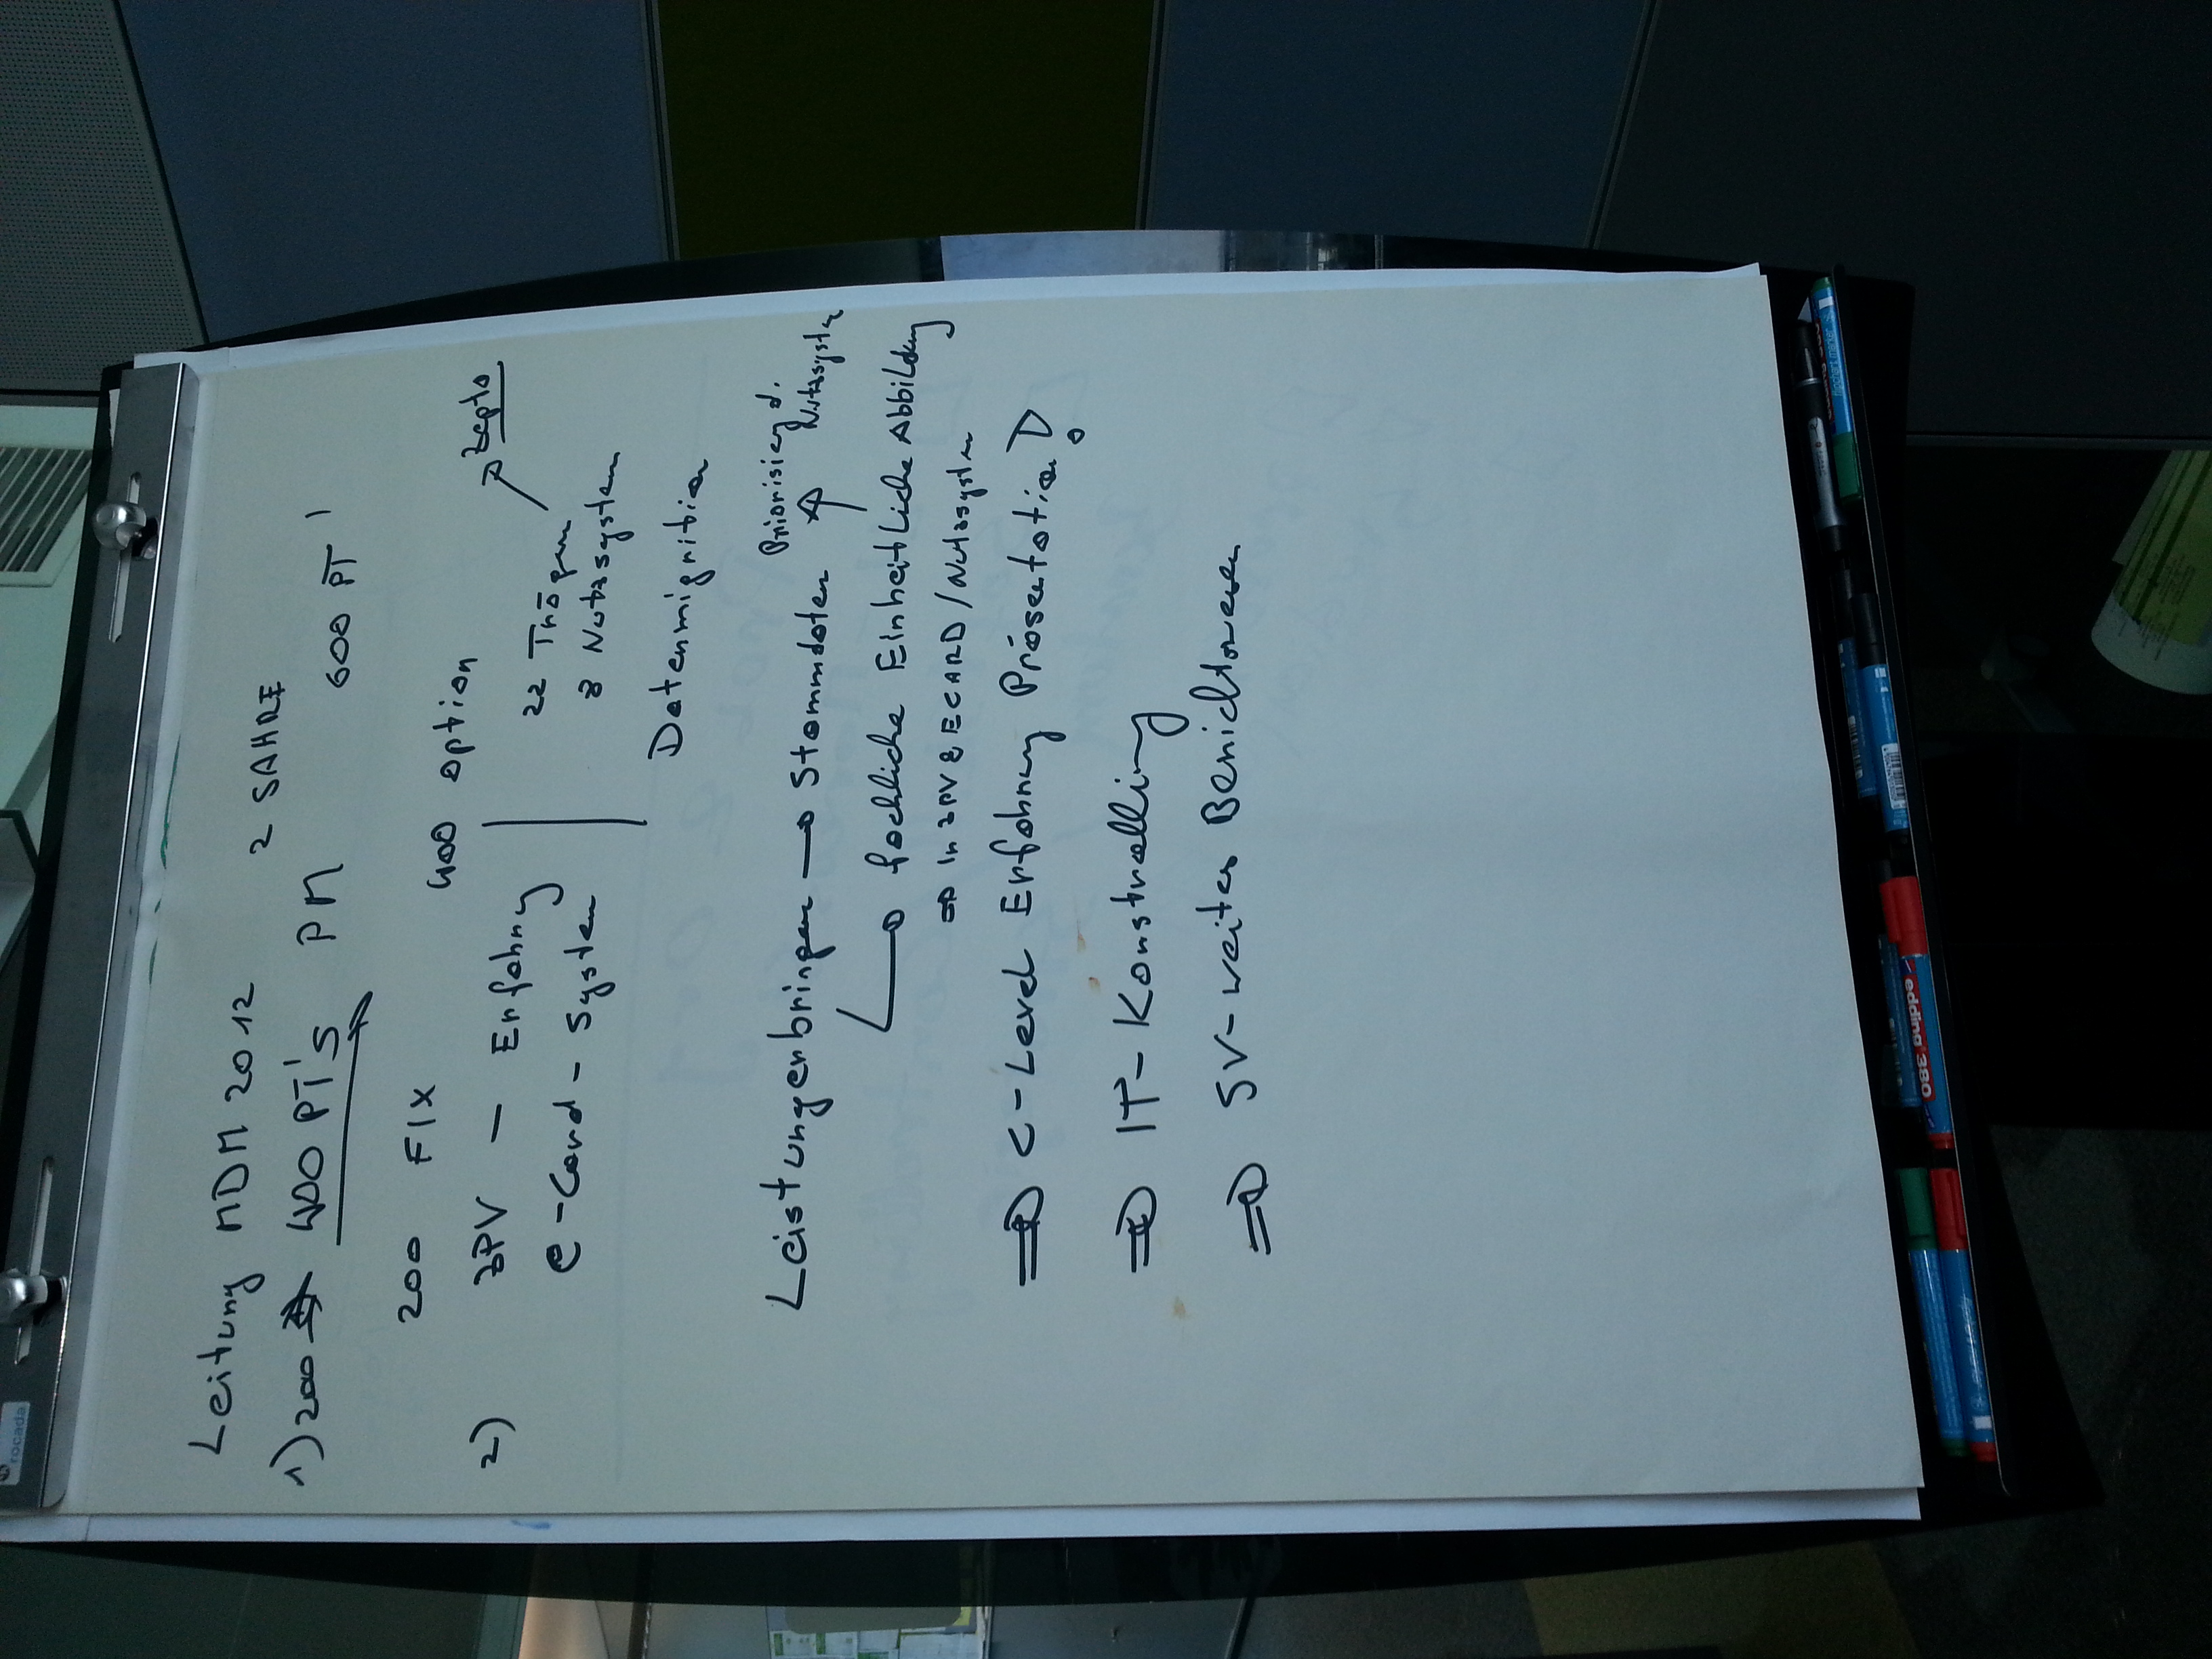 Leitung MDM 2012
2 JAHRE
1) 200 400 PT's PM 600 PT
200 FIX 400 option
2) ZPV - Erfahrung 22 Träger → Zepta
e-Card-System 8 Nutzsystem
Datenmigration
Leistungerbringer → Stammdaten → Priorisierg d. Nutzsystem
→ fachliche Einheitliche Abbildung
⇒ In ZPV & ECARD/Nutzsystem
⇒ C-Level Erfahrung Präsentation!
⇒ IT-Konstrolling
⇒ SV-weites Berichtswesen
rocada
edding 380